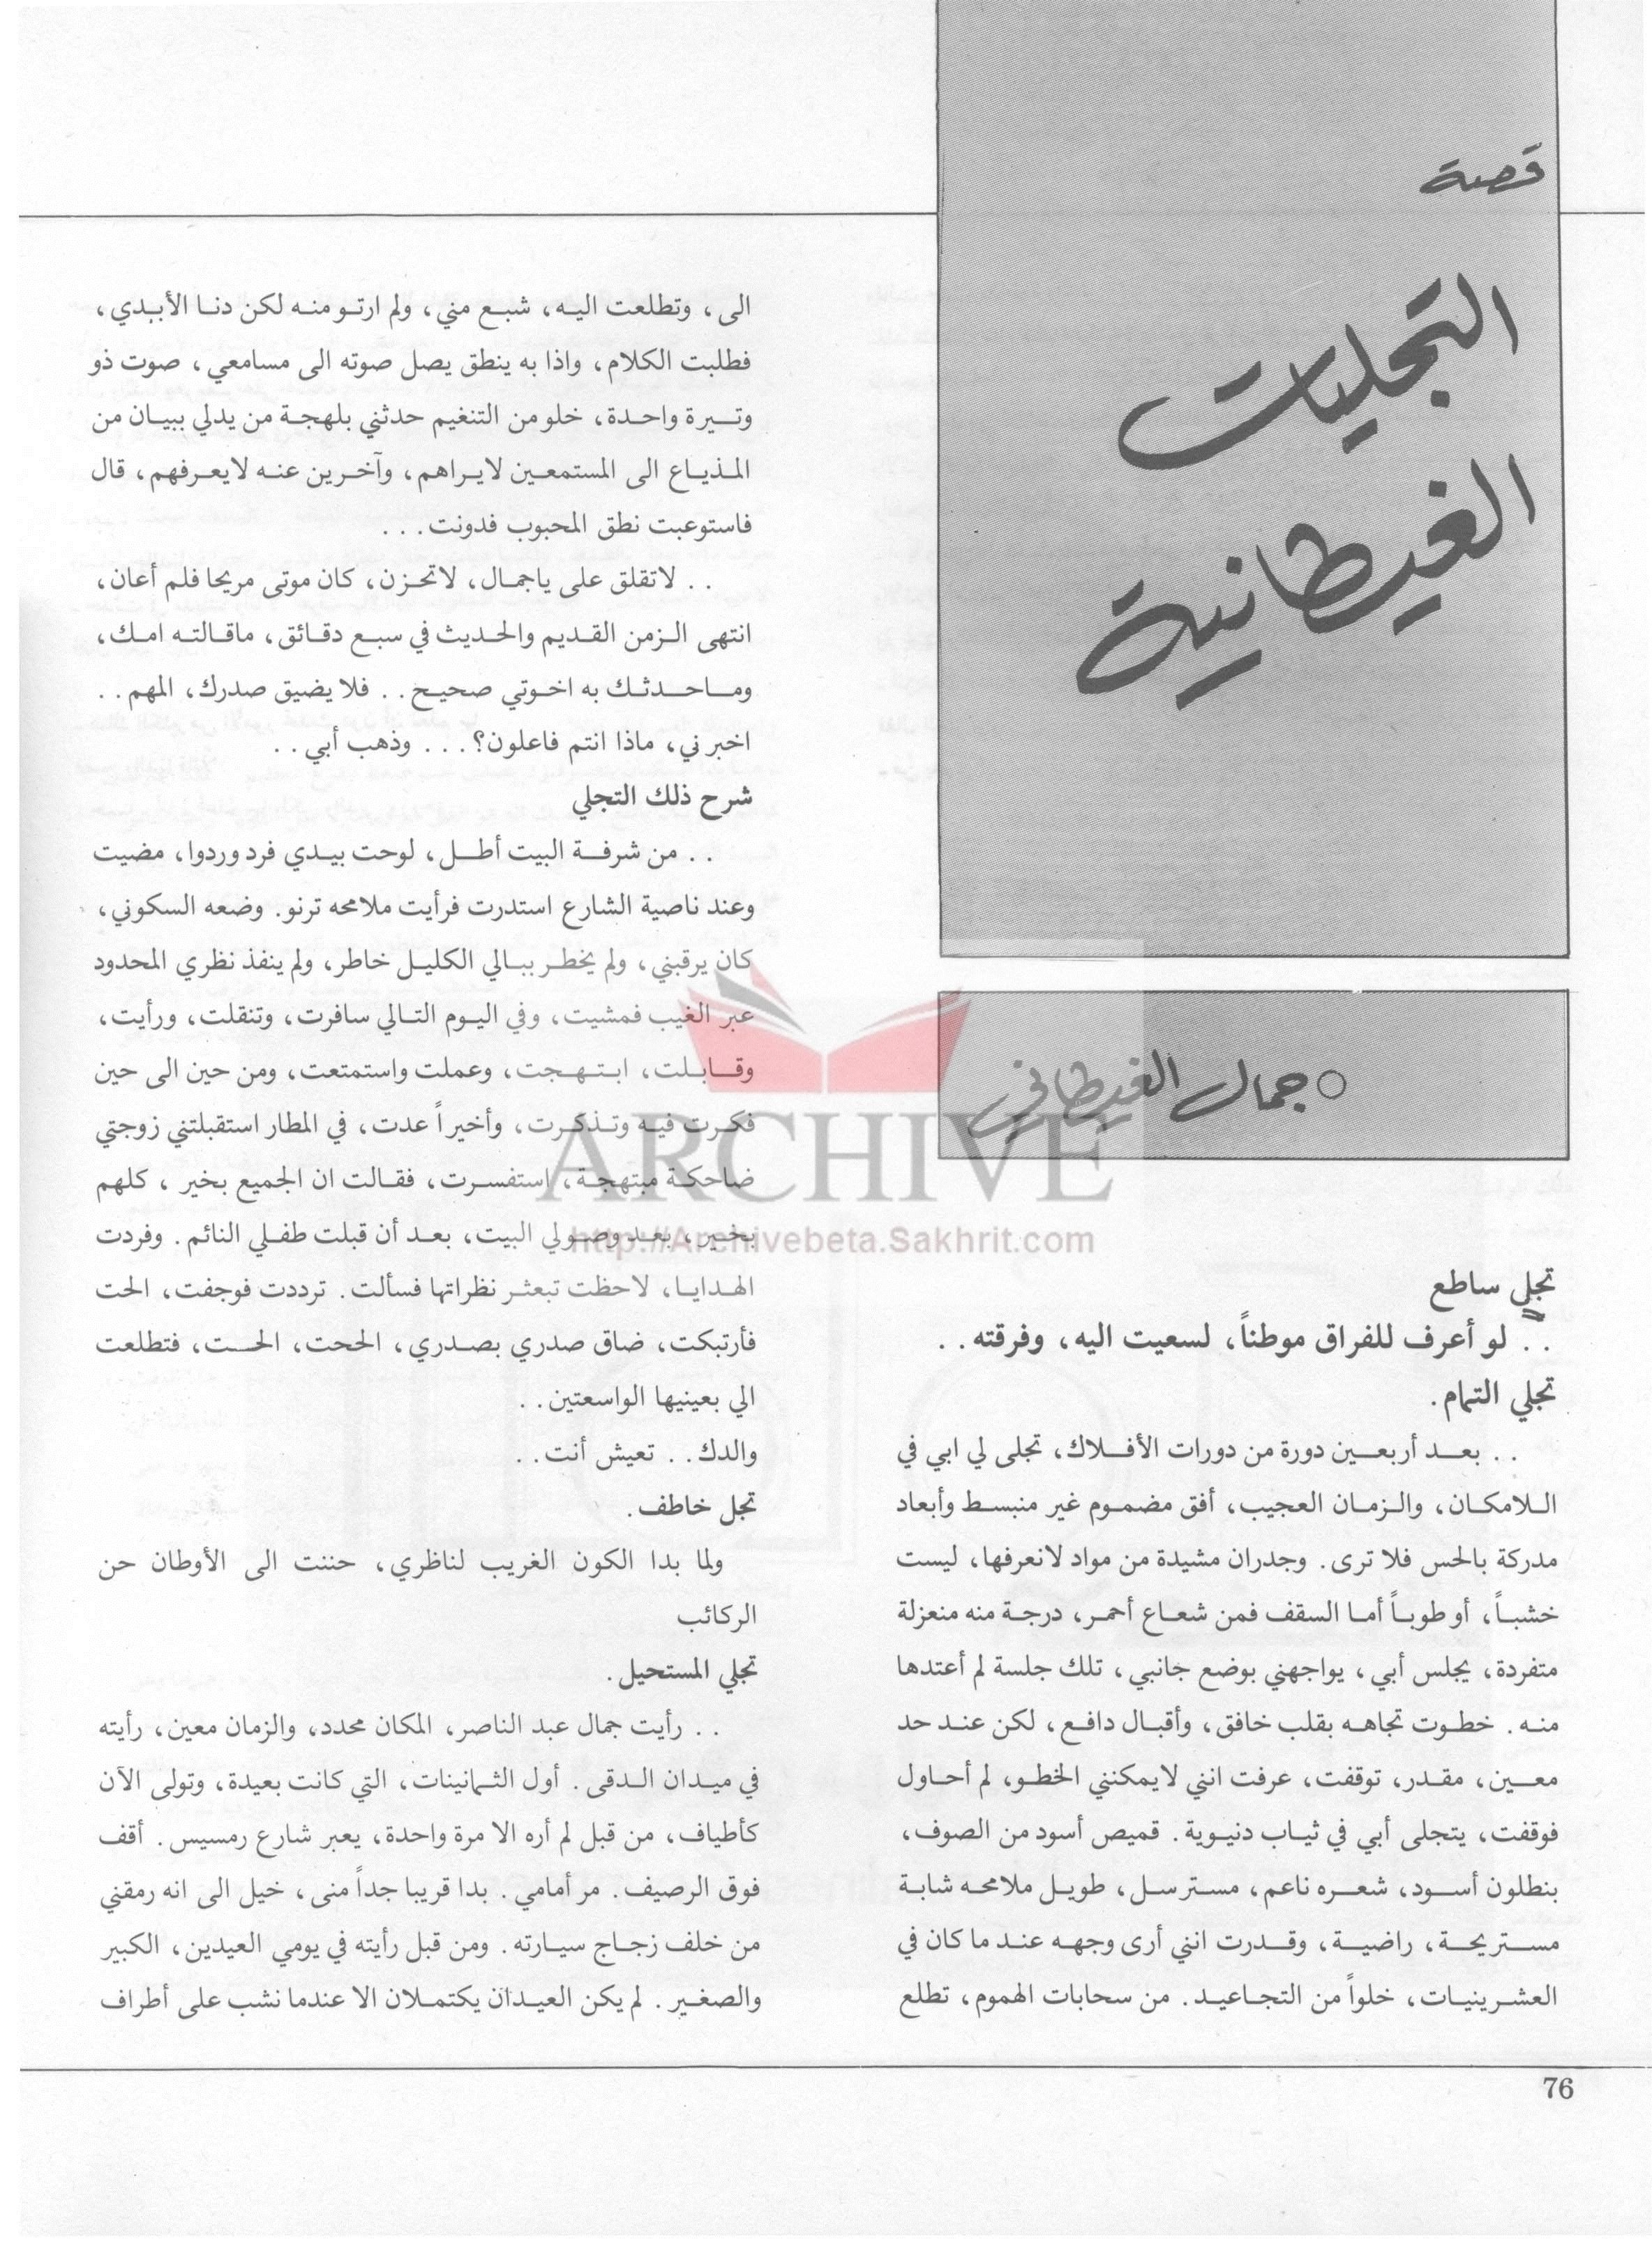 قصة
التجليات
الغيطانية
○ جمال الغيطاني
تجلي ساطع
. . لو أعرف للفراق موطناً، لسعيت اليه، وفرقته . .
تجلي التمام .
. . بعد أربعين دورة من دورات الأفلاك، تجلى لي ابي في
اللامكان، والزمان العجيب، أفق مضموم غير منبسط وأبعاد
مدركة بالحس فلا ترى. وجدران مشيدة من مواد لانعرفها، ليست
خشباً، أو طوباً أما السقف فمن شعاع أحمر، درجة منه منعزلة
متفردة، يجلس أبي، يواجهني بوضع جانبي، تلك جلسة لم أعتدها
منه. خطوت تجاهه بقلب خافق، وأقبال دافع، لكن عند حد
معين، مقدر، توقفت، عرفت انني لايمكنني الخطو، لم أحاول
فوقفت، يتجلى أبي في ثياب دنيوية. قميص أسود من الصوف،
بنطلون أسود، شعره ناعم، مسترسل، طويل ملامحه شابة
مستريحة، راضية، وقدرت انني أرى وجهه عند ما كان في
العشرينيات، خلواً من التجاعيد. من سحابات الهموم، تطلع
الى، وتطلعت اليه، شبع مني، ولم ارتو منه لكن دنا الأبدي،
فطلبت الكلام، واذا به ينطق يصل صوته الى مسامعي، صوت ذو
وتيرة واحدة، خلو من التنغيم حدثني بلهجة من يدلي ببيان من
المذياع الى المستمعين لايراهم، وآخرين عنه لايعرفهم، قال
فاستوعبت نطق المحبوب فدونت . . .
. . لاتقلق على ياجمال، لاتحزن، كان موتى مريحا فلم أعان،
انتهى الزمن القديم والحديث في سبع دقائق، ماقالته امك،
وماحدثك به اخوتي صحيح . . فلا يضيق صدرك، المهم . .
اخبرني، ماذا انتم فاعلون؟ . . . وذهب أبي . .
شرح ذلك التجلي
. . من شرفة البيت أطل، لوحت بيدي فرد وردوا، مضيت
وعند ناصية الشارع استدرت فرأيت ملامحه ترنو. وضعه السكوني،
كان يرقبني، ولم يخطر ببالي الكليل خاطر، ولم ينفذ نظري المحدود
عبر الغيب فمشيت، وفي اليوم التالي سافرت، وتنقلت، ورأيت،
وقابلت، ابتهجت، وعملت واستمتعت، ومن حين الى حين
فكرت فيه وتذكرت، وأخيراً عدت، في المطار استقبلتني زوجتي
ضاحكة مبتهجة، استفسرت، فقالت ان الجميع بخير، كلهم
بخير، بعد وصولي البيت، بعد أن قبلت طفلي النائم. وفردت
الهدايا، لاحظت تبعثر نظراتها فسألت. ترددت فوجفت، الحت
فأرتبكت، ضاق صدري بصدري، الححت، الحت، فتطلعت
الي بعينيها الواسعتين . .
والدك . . تعيش أنت . .
تجل خاطف .
ولما بدا الكون الغريب لناظري، حننت الى الأوطان حن
الركائب
تجلي المستحيل .
. . رأيت جمال عبد الناصر، المكان محدد، والزمان معين، رأيته
في ميدان الدقى. أول الثمانينات، التي كانت بعيدة، وتولى الآن
كأطياف، من قبل لم أره الا مرة واحدة، يعبر شارع رمسيس. أقف
فوق الرصيف. مر أمامي. بدا قريبا جداً منى، خيل الى انه رمقني
من خلف زجاج سيارته. ومن قبل رأيته في يومي العيدين، الكبير
والصغير. لم يكن العيدان يكتملان الا عندما نشب على أطراف
76
ARCHIVE
http://Archivebeta.Sakhrit.com